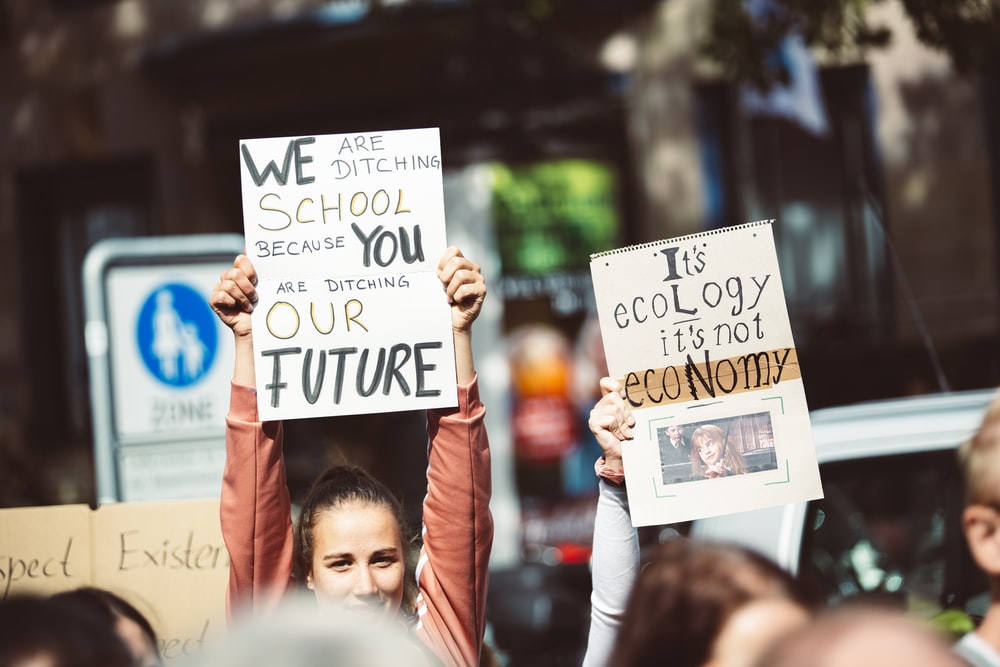 WE ARE
DITCHING
SCHOOL
BECAUSE YOU
ARE DITCHING
OUR
FUTURE
It's
ecoLogy
it's not
ecoNomy
ZONE
spect
Existen